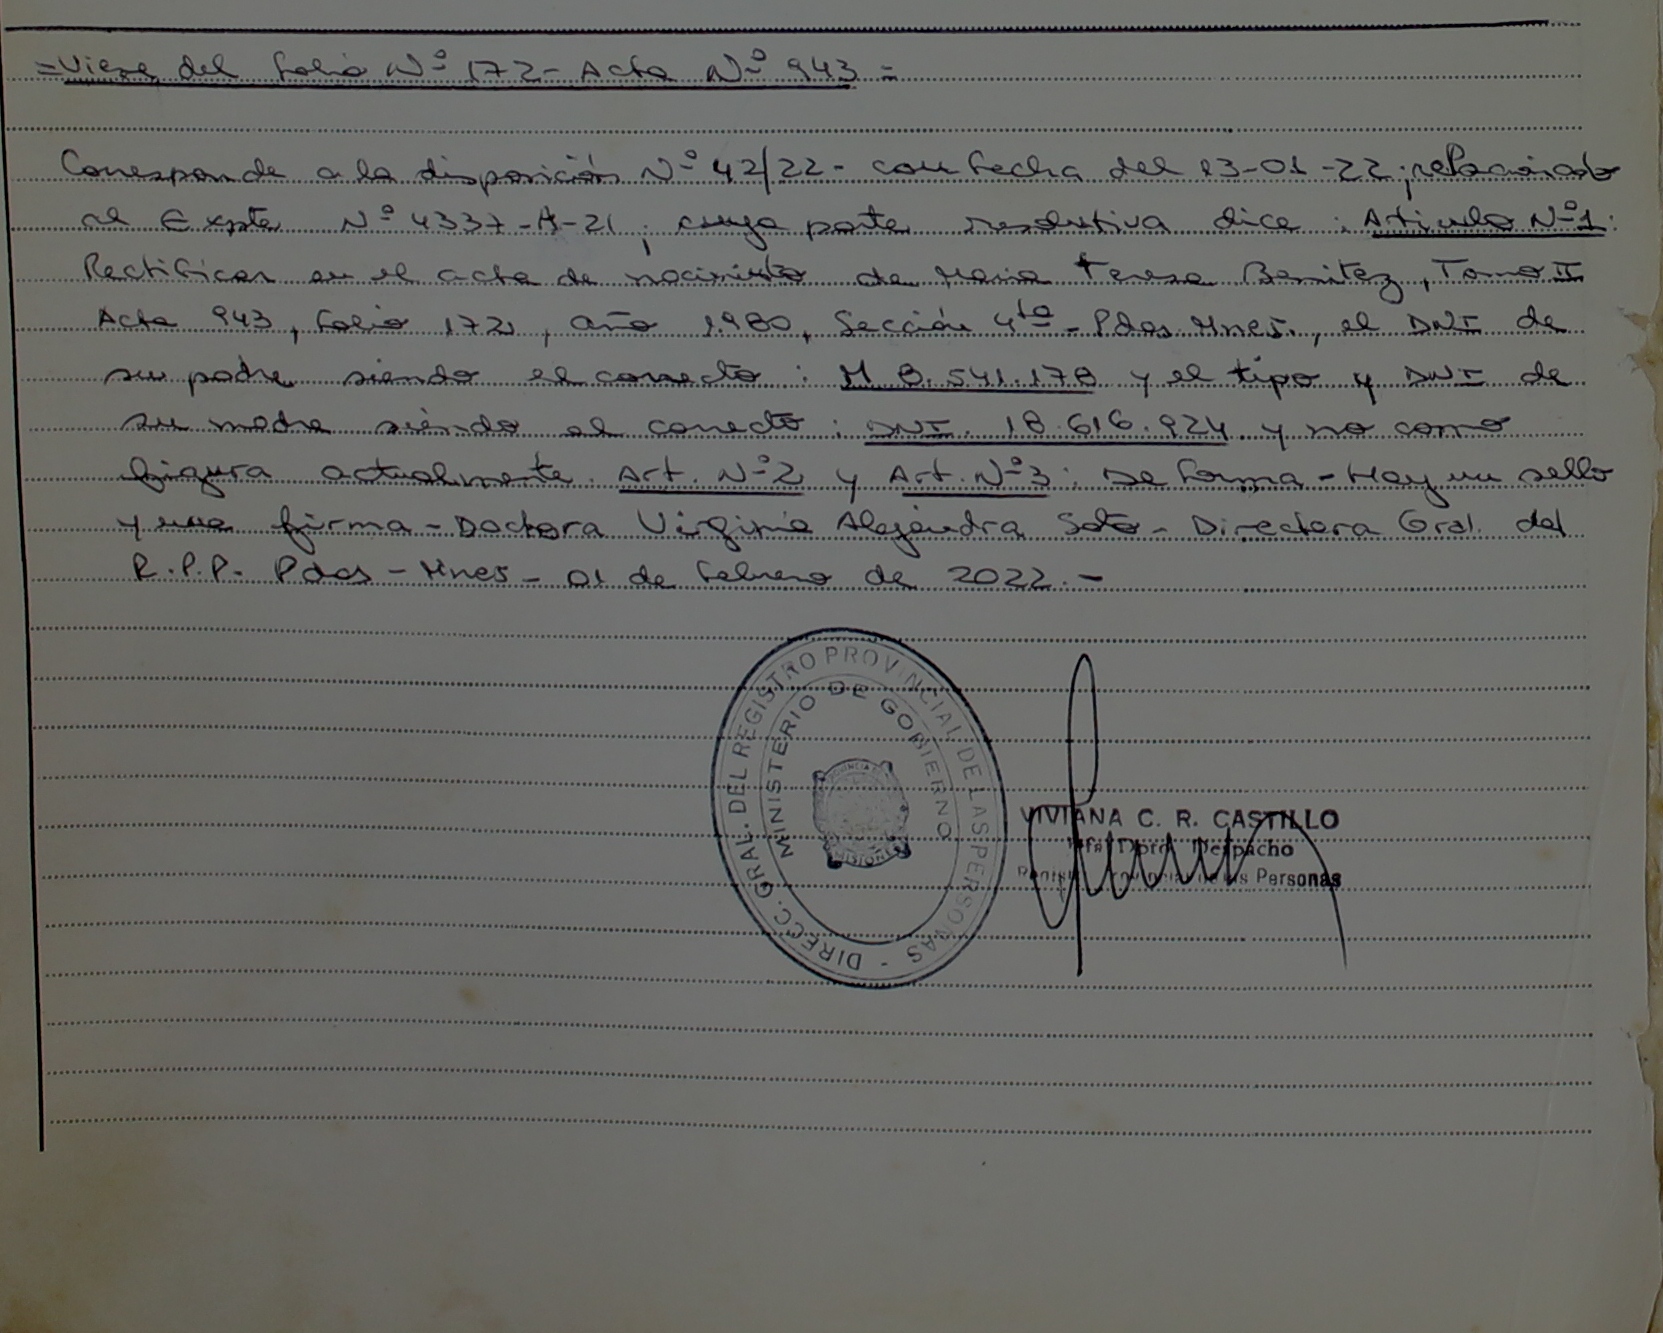 =Viene del folio Nº 172- Acta Nº 943=
Corresponde a la disposición Nº 42/22- con fecha del 13-01-22; relacionado
al Expte Nº 4337-A-21; cuya parte resolutiva dice: Articulo Nº1:
Rectificar en el acta de nacimiento de Maria Teresa Benitez, Tomo II
Acta 943, folio 172, año 1980, Sección 4ta- Pdas. Mnes., el DNI de
su padre siendo el correcto: M 8.541.178 y el tipo y DNI de
su madre siendo el correcto: DNI. 18.616.924 y no como
figura actualmente. Art. Nº2 y Art. Nº3: De forma- Hay un sello
y una firma- Doctora Virginia Alejandra Soto- Directora Gral. del
R.P.P. Pdas- Mnes- 01 de febrero de 2022.-
DIRECC. GRAL. DEL REGISTRO PROVINCIAL DE LAS PERSONAS -
MINISTERIO DE GOBIERNO
PROVINCIA
MISIONES
VIVIANA C. R. CASTILLO
Despacho
Personas